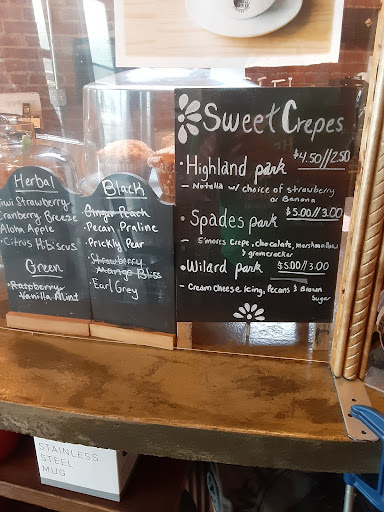 Herbal
Kiwi Strawberry
Cranberry Breeze
Aloha Apple
• Citrus Hibiscus
Green
• Raspberry
Vanilla Mint
Black
• Ginger Peach
• Pecan Praline
• Prickly Pear
• Strawberry
Mango Bliss
• Earl Grey
Sweet Crepes
• Highland park $4.50//2.50
— Nutella w/ choice of strawberry
or Banana
• Spades park $5.00//3.00
— S'mores Crepe, chocolate, marshmallows
& gramcracker
• Wilard park $5.00//3.00
— Cream Cheese Icing, Pecans & Brown
Sugar
STAINLESS
STEEL
MUG